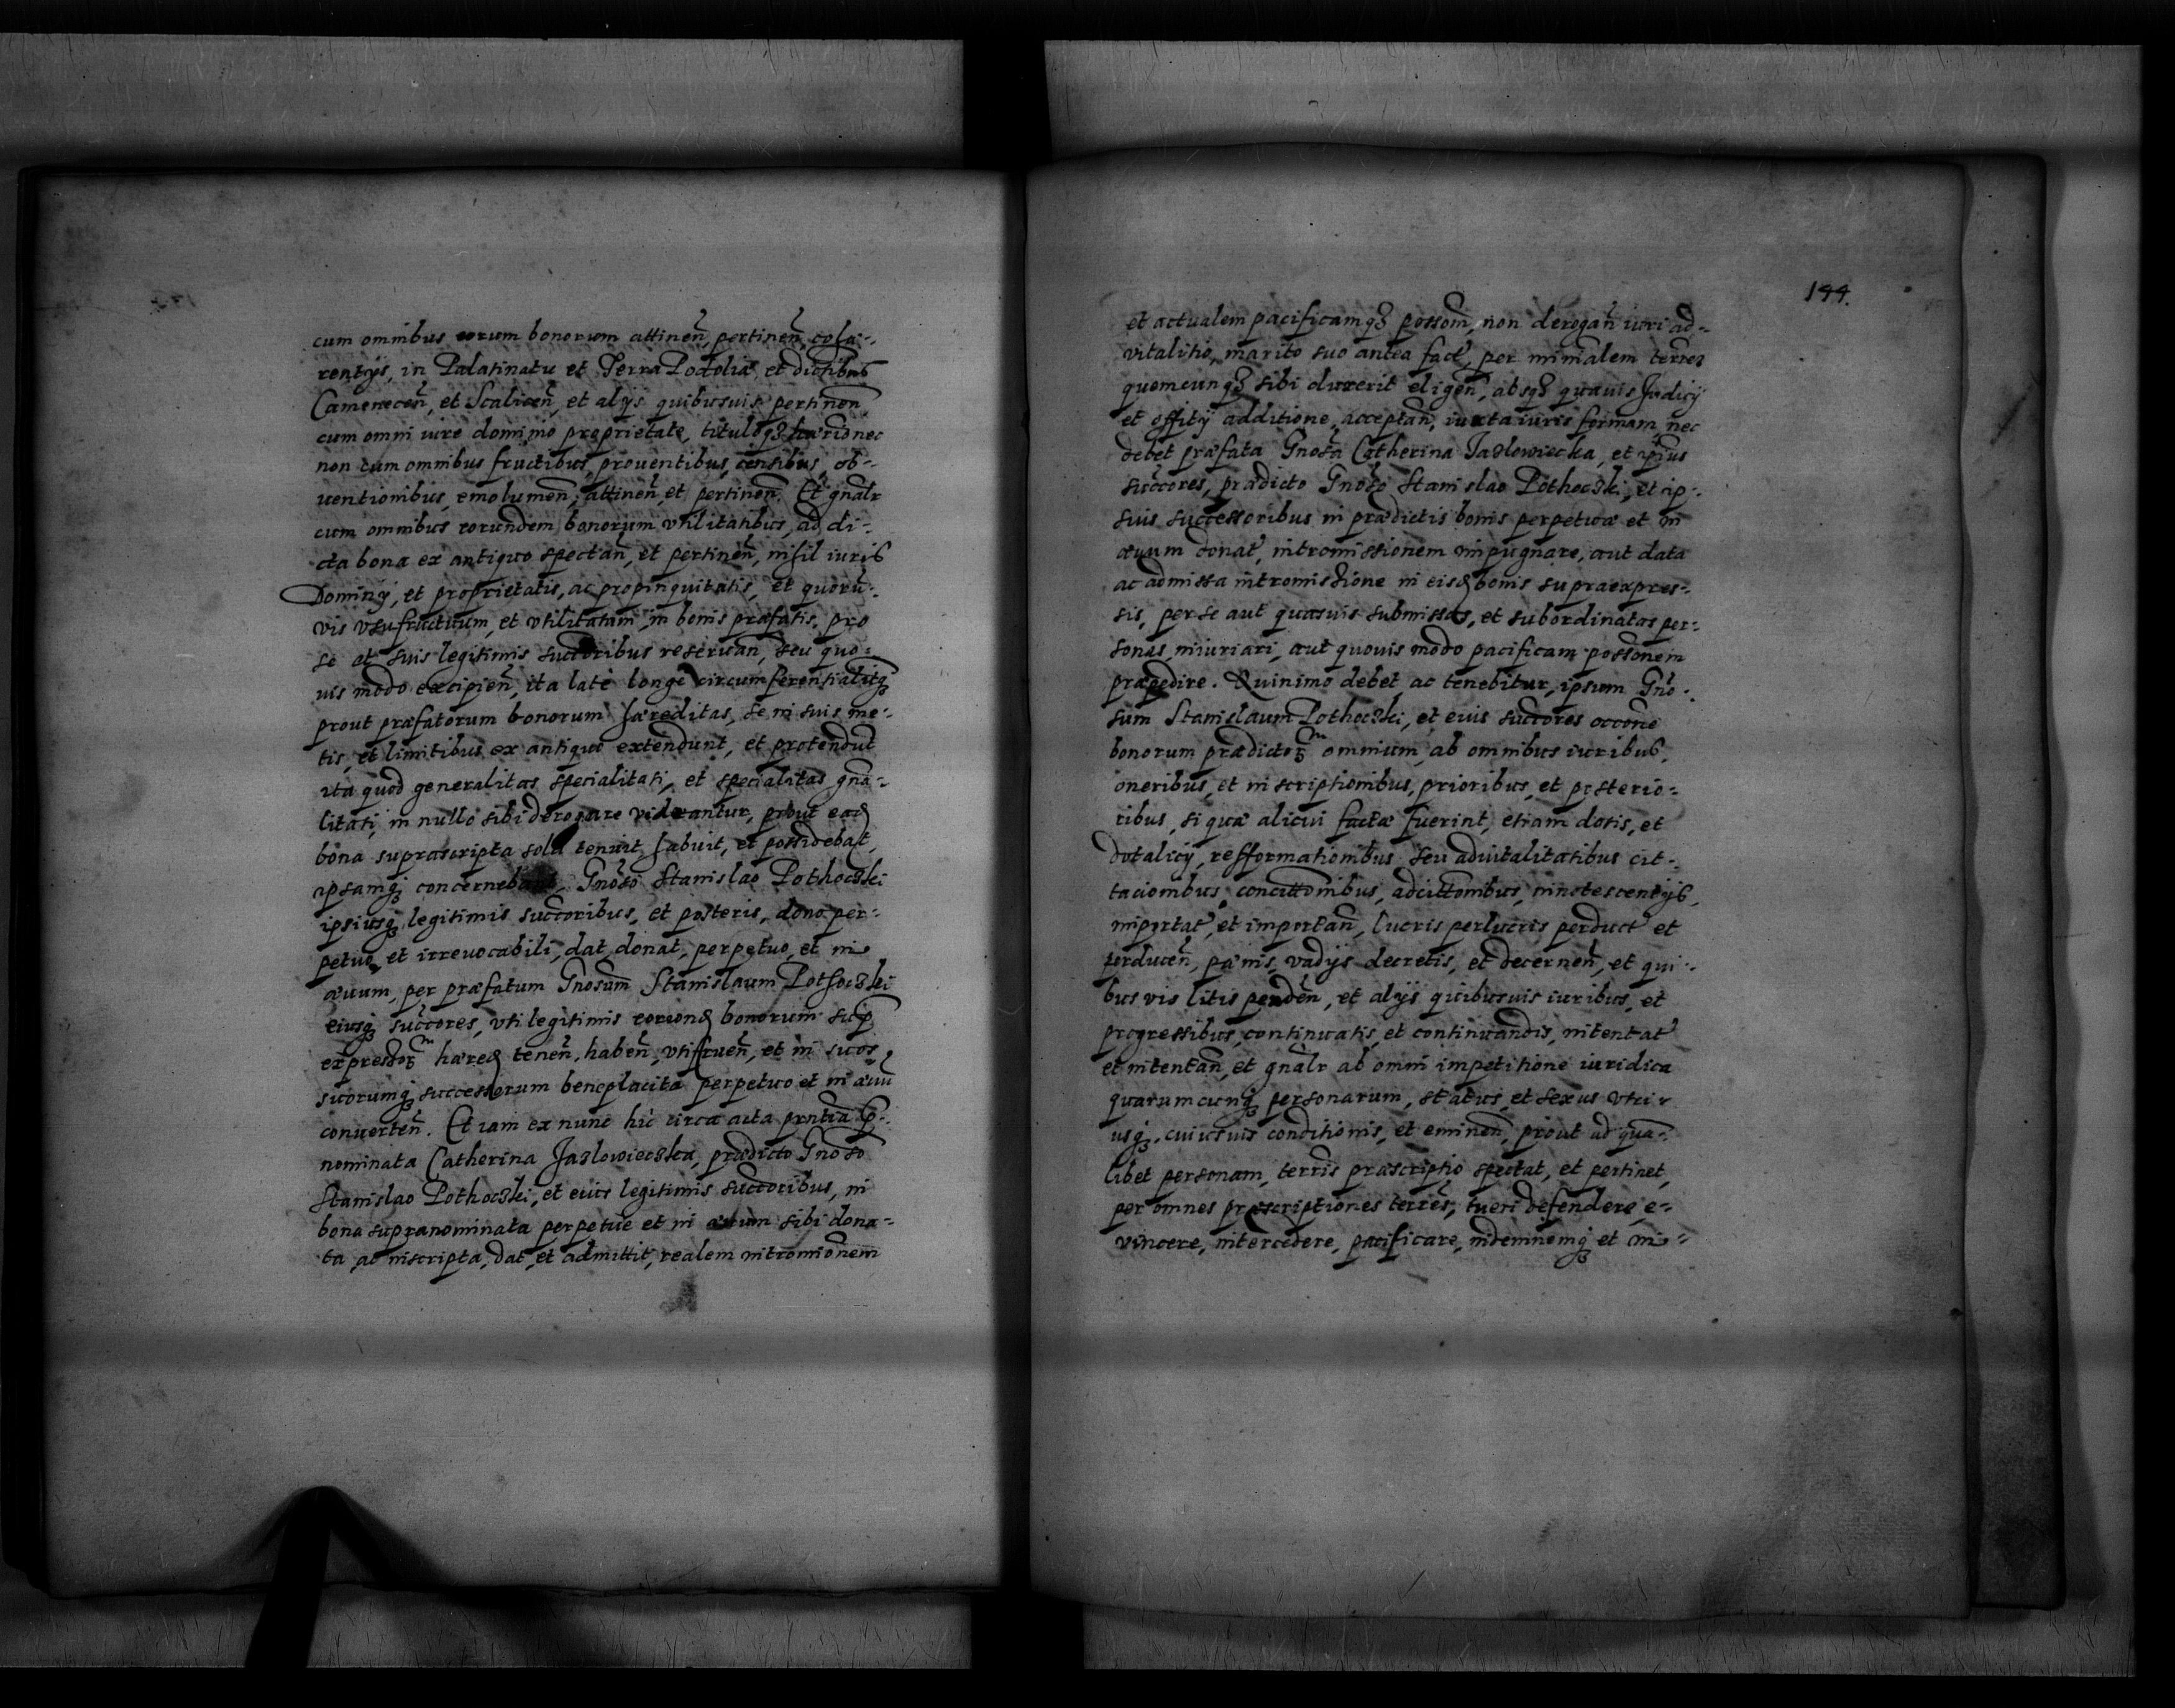 cum omnibus eorum bonorum attinen̄, pertinen̄, cohæ-
rentijs, in Palatinatu et Terra Podoliæ, et dictibus
Camenecen̄, et Scalicen̄, et alijs quibusuis pertinen̄
cum omni iure dominio proprietate, tituloqȝ hærio nec
non cum omnibus fructibus, prouentibus, censibus, ob-
uentionibus, emolumen̄, attinen̄ et pertinen̄. Et gn̄alr
cum omnibus eorundem bonorum vtilitatibus, ad di-
cta bona ex antiquo spectan̄, et pertinen̄, nihil iuris
Dominij, et proprietatis, ac propinquitatis, et quorū-
vis vsufructuum, et vtilitatum, in bonis præfatis, pro
se et suis legitimis succoribus reseruan̄, seu quo-
uis modo excipien̄, ita latè longè circumferentialitqȝ
prout præfatorum bonorum hæreditas, se in suis me-
tis, et limitibus ex antiquo extendunt, et protendūt
ita quod generalitas specialitati, et specialitas gn̄a-
litati, in nullo sibi derogare videantur, prout eadꝫ
bona suprascripta sola tenuit habuit, et possidebat,
ipsamqȝ concernebant, Gn̄oso Stanislao Pothocżki
ipsiusqȝ legitimis succoribus, et posteris, dono per-
petuo, et irreuocabili, dat, donat, perpetuo, et in
æuum, per præfatum Gnosum Stanislaum Pothocżki
eiusqȝ succores, vti legitimis eorundꝫ bonorum sup
expressor̄ hæredꝫ tenen̄, haben̄, vtifruen̄, et in suos
suorumqȝ successorum beneplacita perpetuo et in æuū
conuerten̄. Et iam ex nunc hic circa acta prn̄tia sp-
nominata Catherina Jazlowieczka, prædicto Gnoso
Stanislao Pothocżki, et eius legitimis succoribus, in
bona supranominata perpetue et in æuum sibi dona-
ta, ac inscripta, dat, et admittit, realem intromionem
144.
et actualem pacificamqȝ possom̄, non derogan̄ iuri ad-
vitalitio, marito suo antea fact̄, per minālem terrēs
quemcunqȝ sibi duxerit eligen̄, absqȝ quauis Judicij
et offitij additione, acceptan̄, iuxta iuris formam, nec
debet præfata Gnosa Catherina Jazlowiecka, et ipius
succores, prædicto Gnoso Stanislao Pothocżki, et ip-
suis successoribus in prædictis bonis perpetuæ et in
æuum donat̄, intromissionem impugnare, aut data
ac admissa intromissione in eisdꝫ bonis supraexpres-
sis, per se aut quasuis submissas, et subordinatas per-
sonas, iniuriari, aut quouis modo pacificam possonem
præpedire. Quinimo debet, ac tenebitur, ipsum Gno-
sum Stanislaum Pothocżki, et euis succores occone
bonorum prædictor̄ omnium, ab omnibus iuribus,
oneribus, et inscriptionibus, prioribus, et posterio-
ribus, si quæ alicui factæ fuerint, etiam dotis, et
dotalicij, refformationibus seu aduitalitatibus cit-
tacionibus, concittonibus, adcittonibus, innotescentijs,
importat̄, et importan̄, lucris perlucris perduct̄ et
perducen̄, pænis, vadijs decretis, et decernen̄, et qui-
bus vis litis penden̄, et alijs quibusuis iuribus, et
progressibus, continuatis, et continuandis, intentat̄
et intentan̄, et gn̄alr ab omni impetitione iuridica
quarumcunqȝ personarum, status, et sexus vtri-
usqȝ, cuiusuis conditionis, et eminen̄, prout ad quā-
libet personam, terris præscriptio spectat, et pertinet,
per omnes præscriptiones terrēs, tueri defendere, e-
vincere, intercedere, pacificare, indemnemqȝ et in-